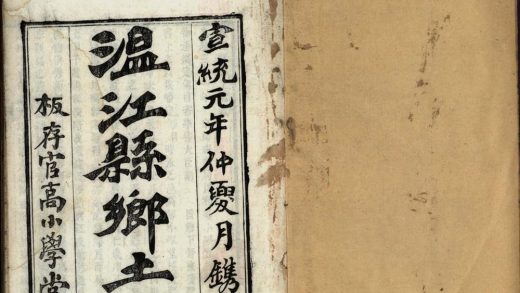 宣統元年仲夏月鐫
溫江縣鄉土
板存官高小學堂